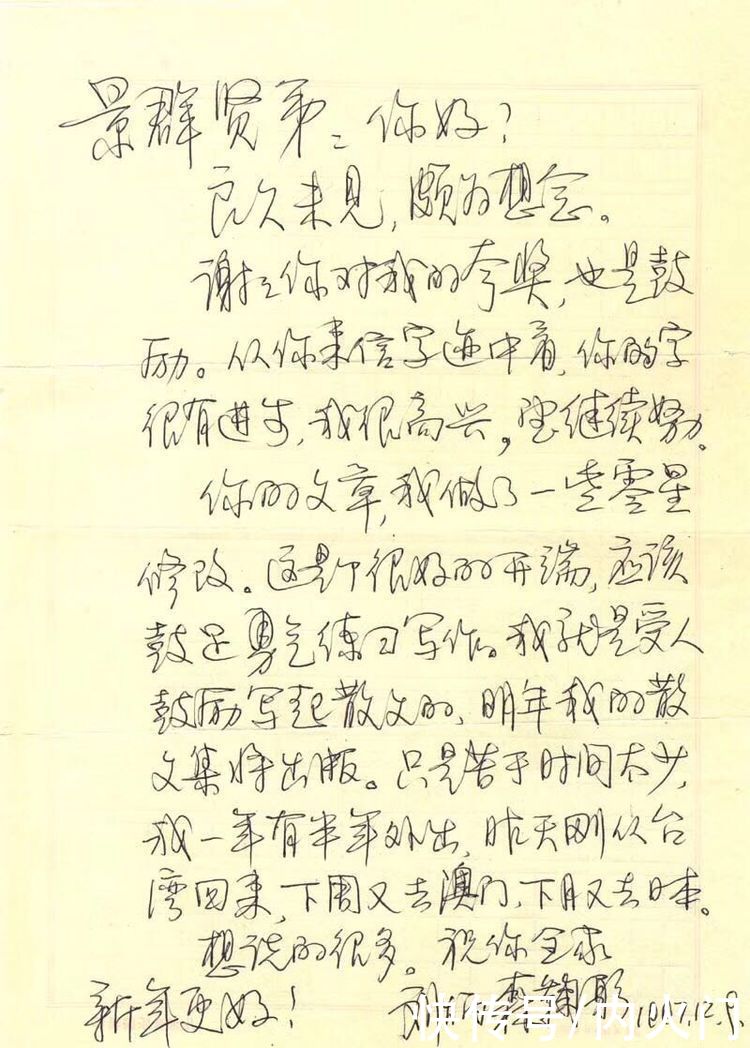 景群贤弟：你好？
良久未见，颇为想念。
谢谢你对我的夸奖，也是鼓
励。从你来信字迹中看，你的字
很有进步，我很高兴，望继续努力。
你的文章，我做了一些零星
修改。这是个很好的开端，应该
鼓足勇气练习写作。我就是受人
鼓励写起散文的，明年我的散
文集将出版。只是苦于时间太少，
我一年有半年外出，昨天刚从台
湾回来，下周又去澳门，下月又去日本。
想说的很多。祝你全家
新年更好！ 李锦 1997.12.9.
快传号/内人门